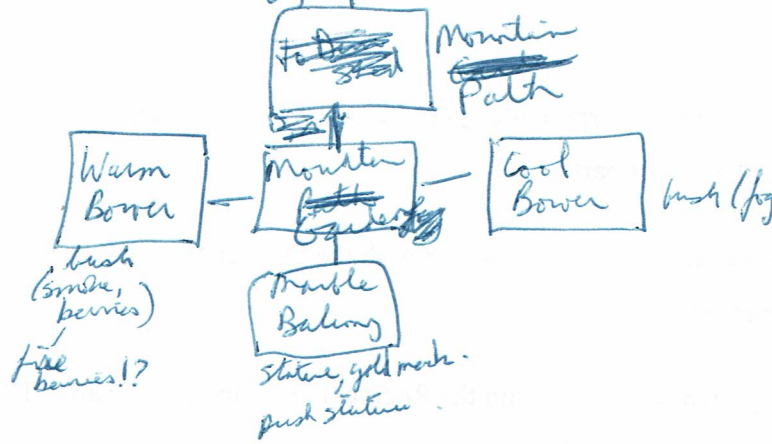 Mountain
Path
Warm
Bower
Mountain
Cool
Bower
bush
(smoke,
berries)
fire
berries!?
Marble
Balcony
statue, gold mech.
push statue.
bush (fog